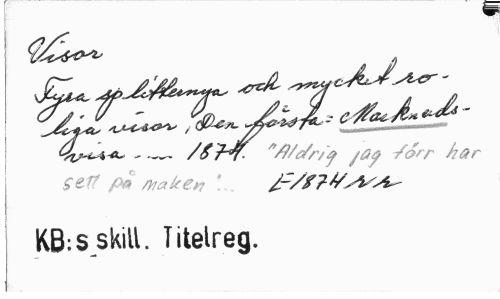 Visor
Fyra splitternya och mycket ro-
liga visor, Den första: Marknads-
visa .... 1874. "Aldrig jag förr har
sett på maken"... E 1874 r r
KB:s skill. Titelreg.